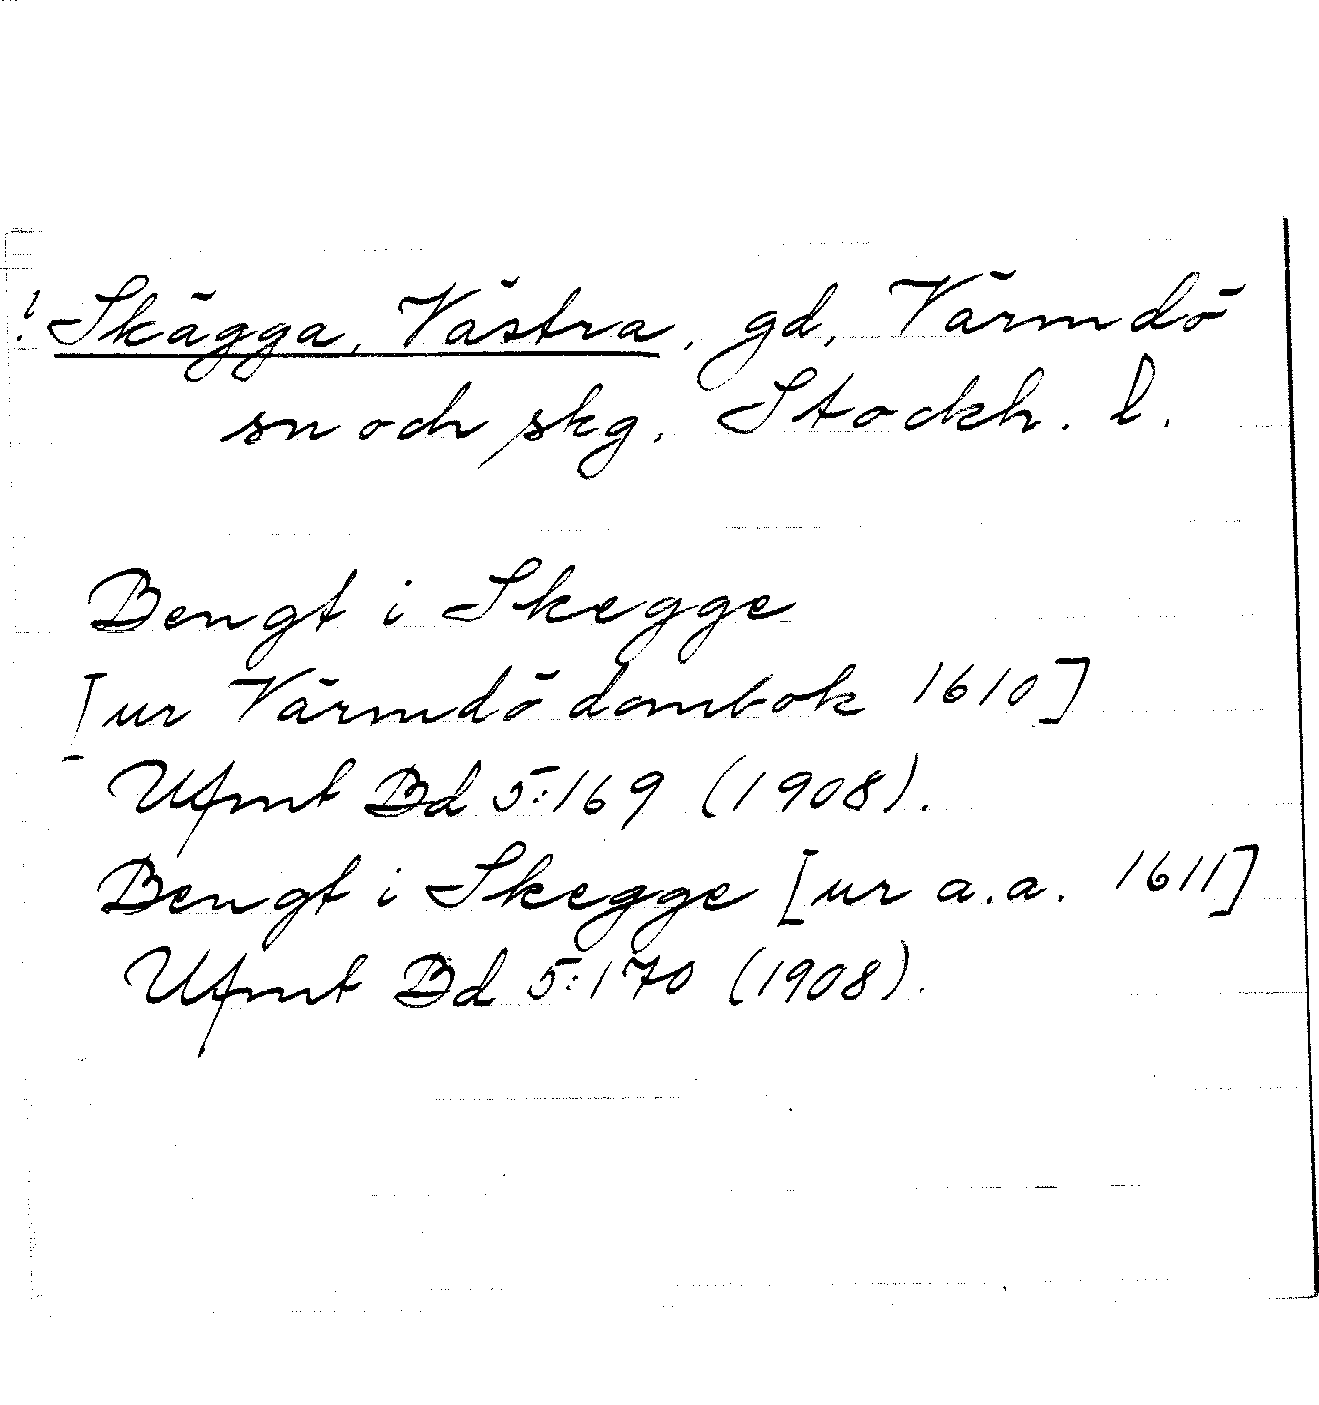 ! Skägga, Västra, gd, Värmdö
sn och skg, Stockh. l.
Bengt i Skegge
[ur Värmdö dombok 1610]
Ufmt Bd 5:169 (1908).
Bengt i Skegge [ur a.a. 1611]
Ufmt Bd 5:170 (1908).